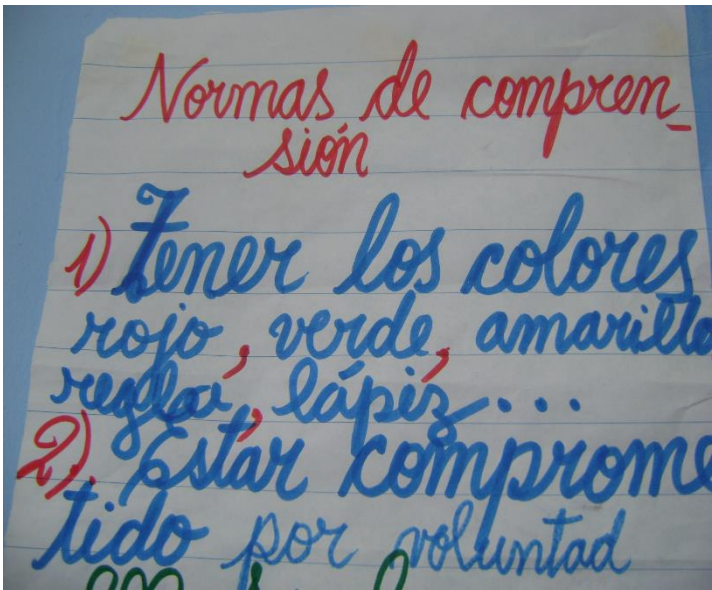 Normas de compren_
sión
1) Tener los colores
rojo, verde, amarillo
regla, lápiz...
2). Estar comprome
tido por voluntad